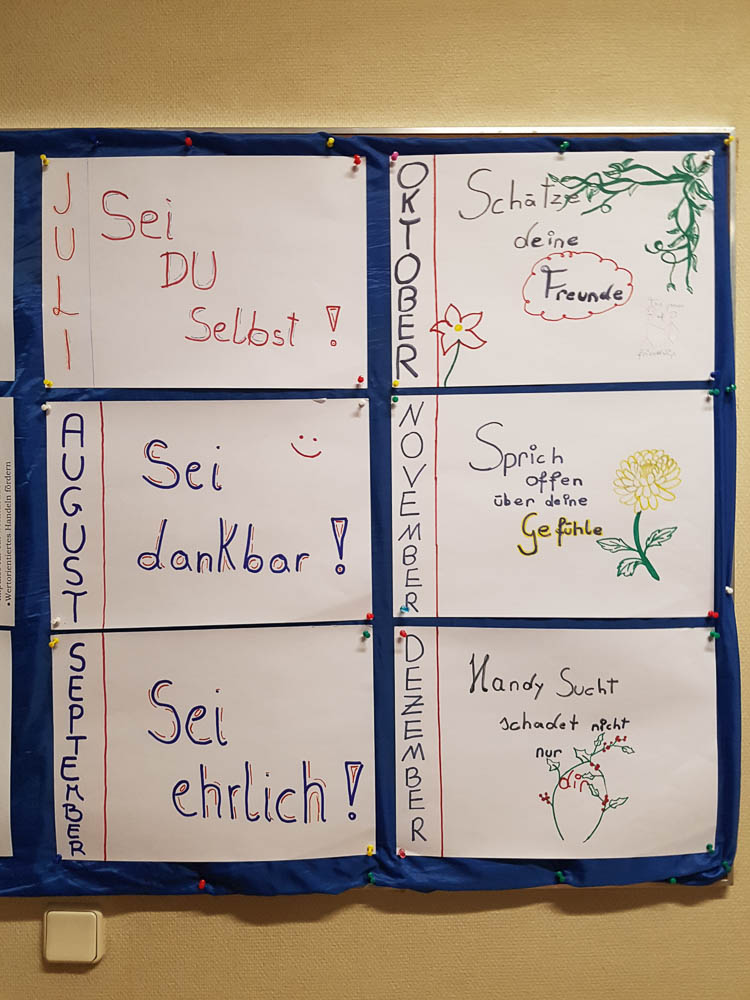 JULI
Sei
DU
Selbst !
AUGUST
Sei
dankbar !
SEPTEMBER
Sei
ehrlich !
OKTOBER
Schätze
deine
Freunde
NOVEMBER
Sprich
offen
über deine
Gefühle
DEZEMBER
Handy Sucht
schadet nicht
nur
dir
• Wertorientiertes Handeln fördern